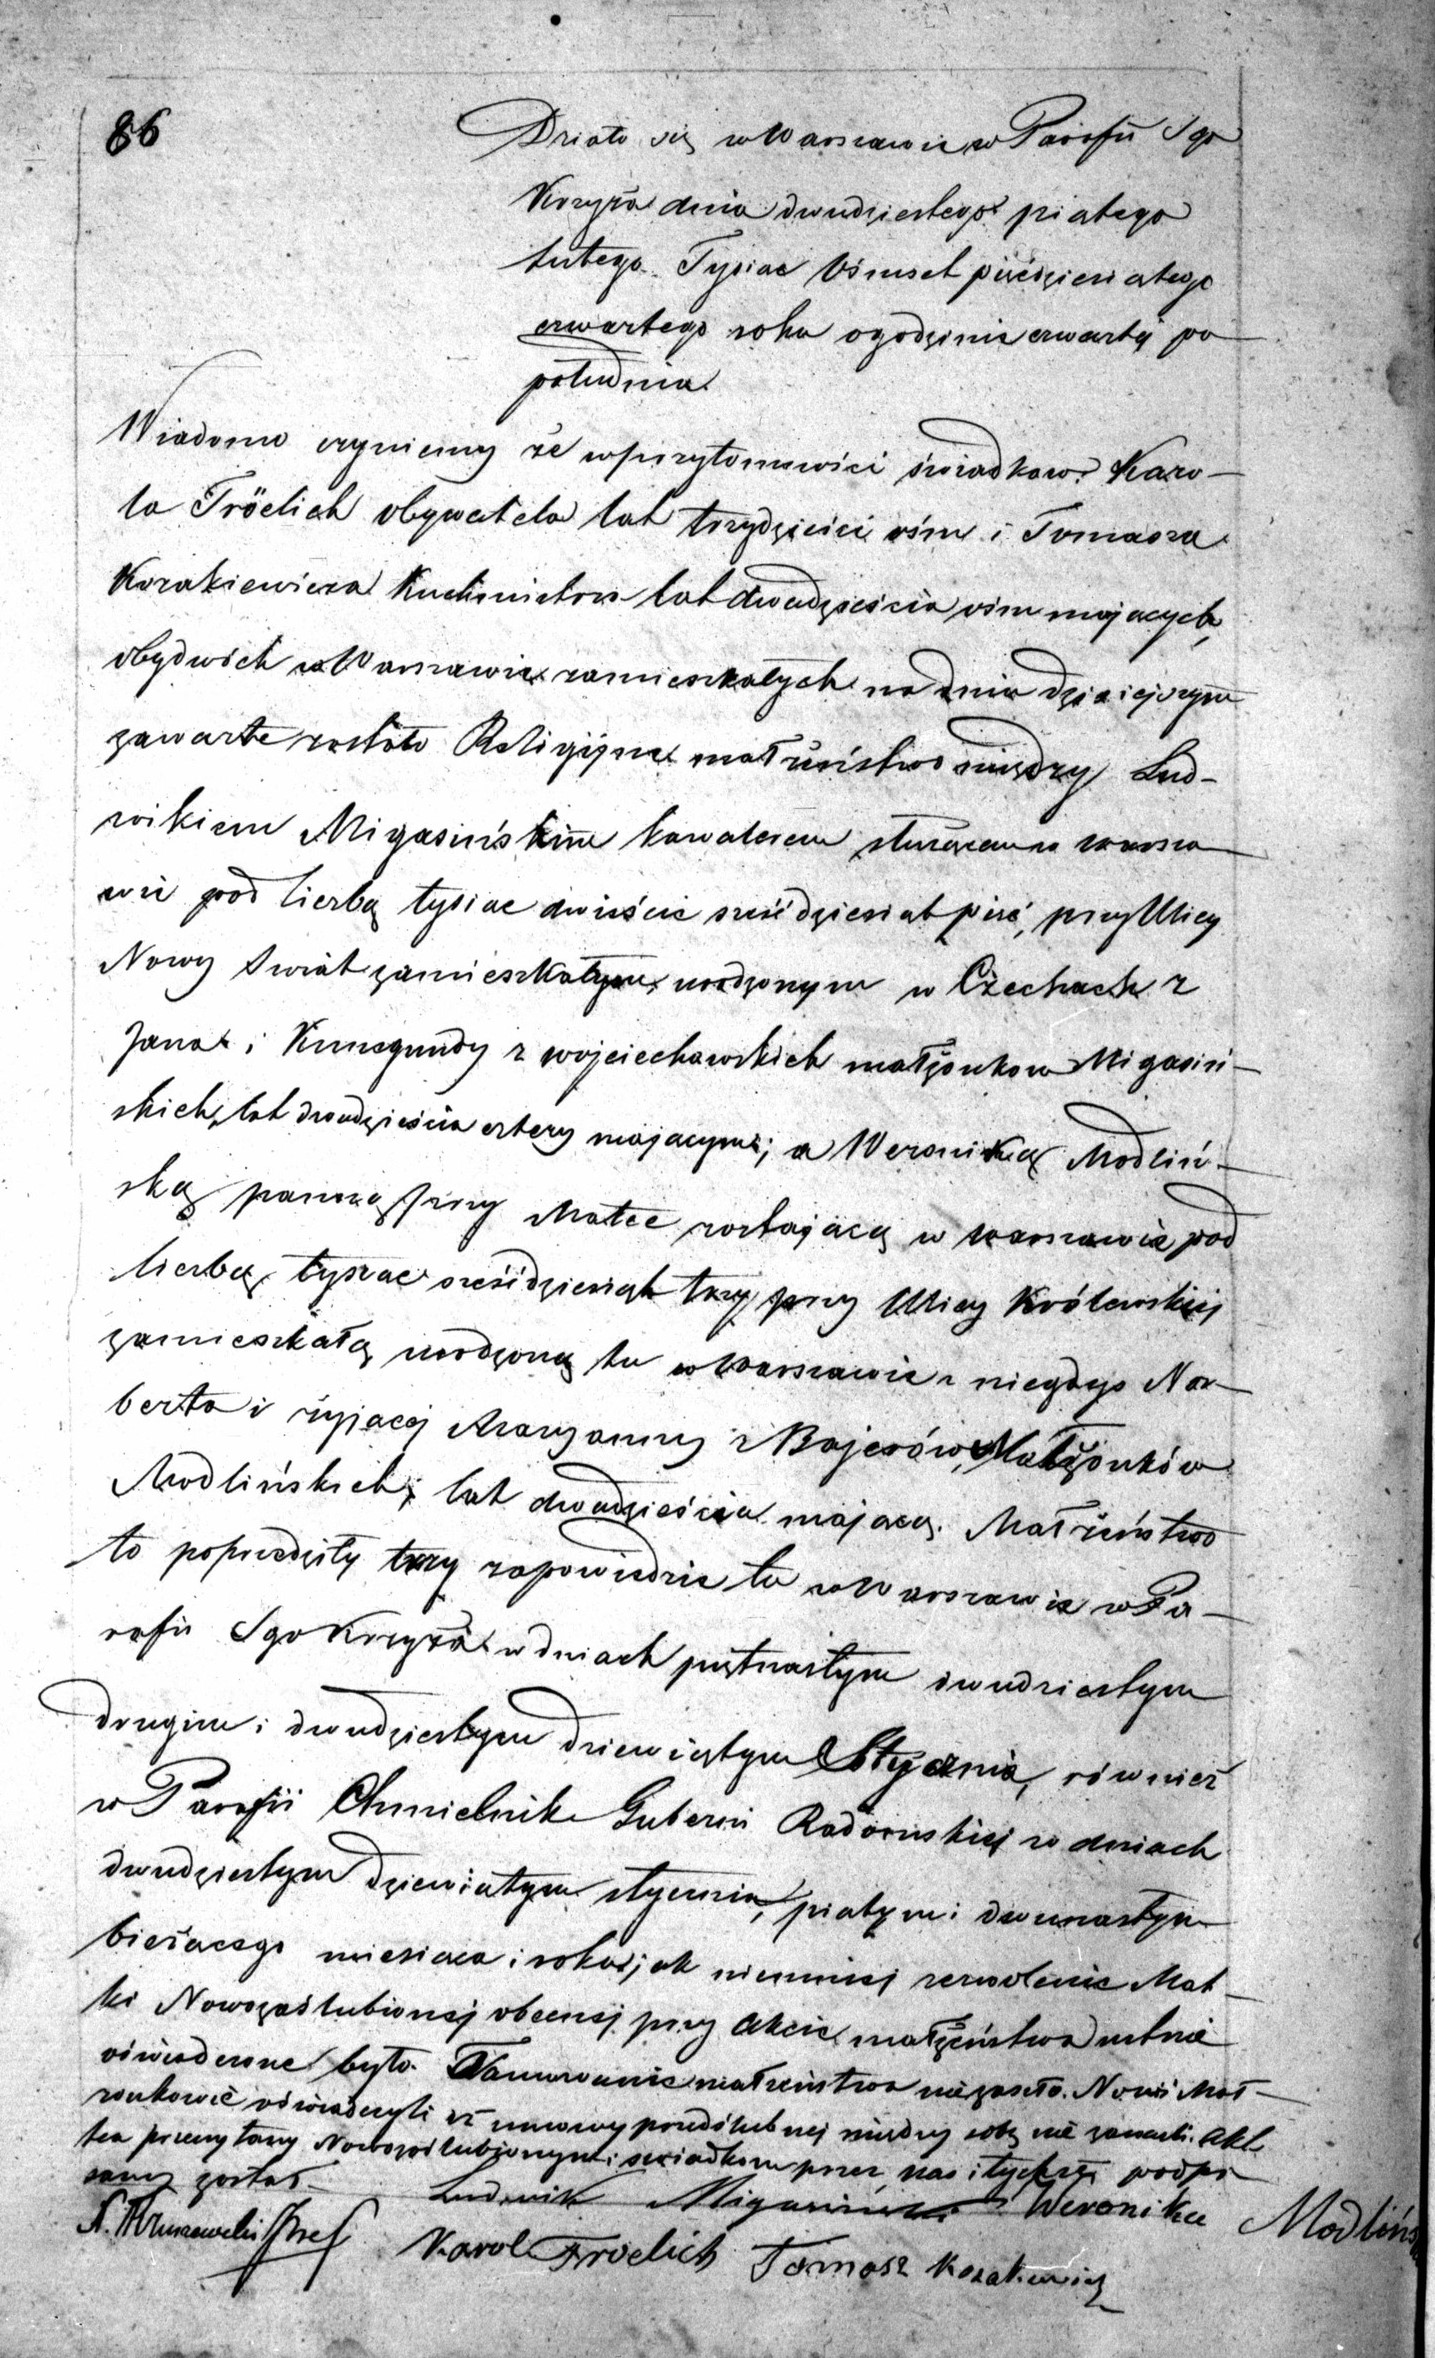 86
Działo się w Warszawie w Parafii Sgo
Krzyża dnia dwudziestego piątego
Lutego Tysiąc Ośmset pięćdziesiątego
czwartego roku o godzinie czwartej po
południu.
Wiadomo czynimy że w przytomności świadków Karo-
la Fröelich obywatela lat trzydzieści ośm i Tomasza
Kozakiewicza Kuchmistrza lat dwadzieścia ośm mających,
obydwóch w Warszawie zamieszkałych na dniu dzisiejszym
zawarte zostało Religijne małżeństwo między Lud-
wikiem Migasińskim kawalerem służącym w Warsza-
wie pod liczbą tysiąc dwieście sześćdziesiąt pięć, przy Ulicy
Nowy Świat zamieszkałym, urodzonym w Czechach z
Jana i Kunegundy z Wojciechowskich małżonków Migasiń-
skich, lat dwadzieścia cztery mającym; a Weroniką Modliń-
ską panną przy Matce zostającą w Warszawie pod
liczbą tysiąc sześćdziesiąt trzy przy Ulicy Królewskiej
zamieszkałą urodzoną tu w Warszawie z niegdyś Nor-
berta i żyjącej Maryanny z Bajerów, Małżonków
Modlińskich, lat dwadzieścia mającą. Małżeństwo
to poprzedziły trzy zapowiedzie tu w Warszawie w Pa-
rafii Sgo Krzyża w dniach piętnastym dwudziestym
drugim i dwudziestym dziewiątym Stycznia, również
w Parafii Chmielnik Guberni Radomskiej w dniach
dwudziestym dziewiątym stycznia, piątym i dwunastym
bieżącego miesiąca i roku, jak niemniej zezwolenie Mat-
ki Nowozaślubionej obecnej przy Akcie małżeństwa ustnie
oświadczone było. Tamowanie małżeństwa nie zaszło. Nowi Mał-
żonkowie oświadczyli iż umowy przedślubnej między sobą nie zawarli. Akt
ten przeczytany Nowozaślubionym i świadkom przez nas i tychże podpi
sany został.
Ludwik Migasiński Weronika Modlińs
Karol Froelich Tomasz Kozakiewicz